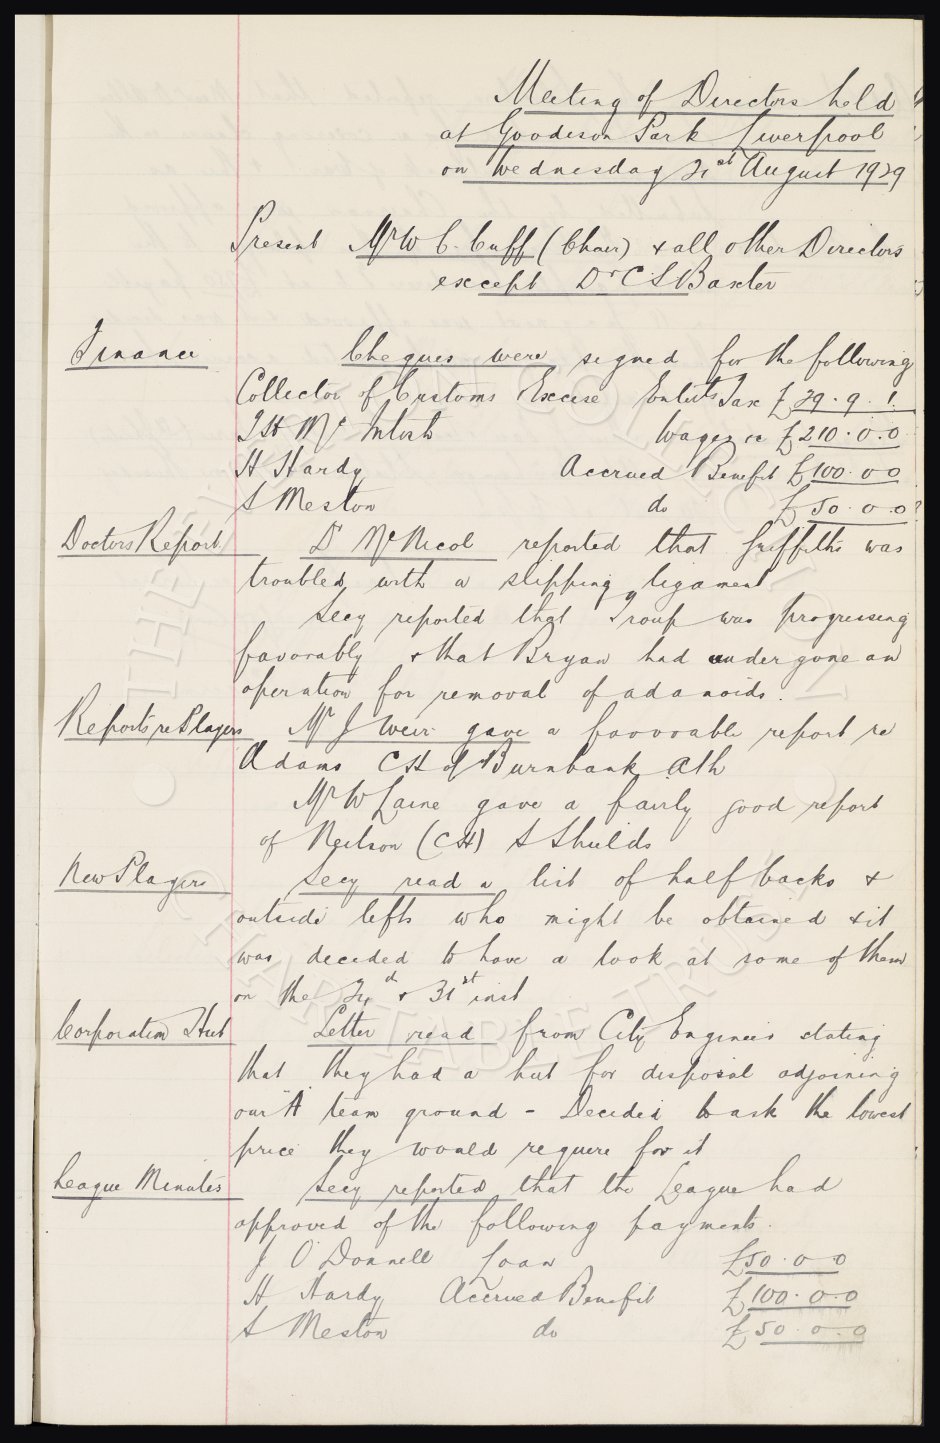 Meeting of Directors held
at Goodison Park Liverpool
on Wednesday 21st August 1929
Present Mr W C. Cuff (Chair) & all other Directors
except Dr C S Baxter
Finance
Cheques were signed for the following
Collector of Customs Excise Entert Tax £ 29. 9. 1.
T H Mc Intosh Wages &c £ 210. 0. 0
H Hardy Accrued Benefit £ 100. 0 0
S Meston do £ 50. 0. 0
Doctors Report.
Dr McNicol reported that Griffiths was
troubled with a slipping ligament
Secy reported that Troup was progressing
favorably & that Bryan had undergone an
operation for removal of adanoids.
Reports re Players
Mr J Weir gave a favorable report re
Adams CH of Burnbank Ath
Mr W Laine gave a fairly good report
of Neilson (CH) S Shields
New Players
Secy read a list of half backs &
outside lefts who might be obtained & it
was decided to have a look at some of them
on the 24 & 31st inst
Corporation Hut
Letter read from City Engineers stating
that they had a hut for disposal adjoining
our "A" team ground - Decided to ask the lowest
price they would require for it
League Minutes
Secy reported that the League had
approved of the following payments.
J O'Donnell Loan £50. 0 0
H Hardy Accrued Benefit £ 100. 0. 0
S Meston do £ 50. 0. 0
© THE EVERTON COLLECTION
CHARITABLE TRUST